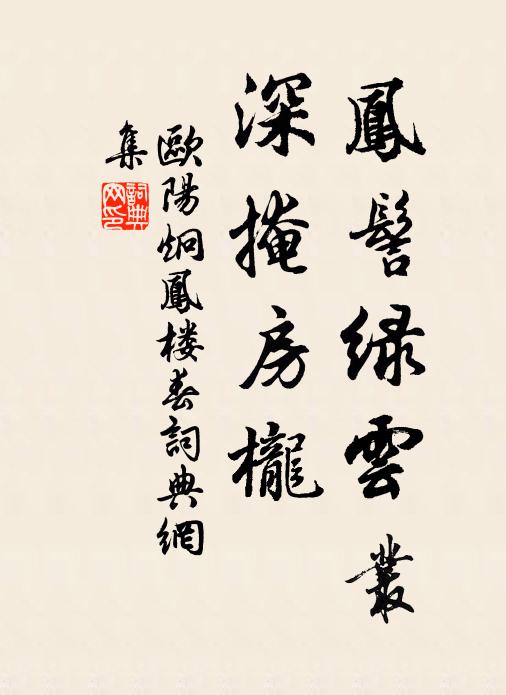 鳳髻綠雲叢
深掩房櫳
歐陽炯鳳楼春詞典網
集
詞典
网印